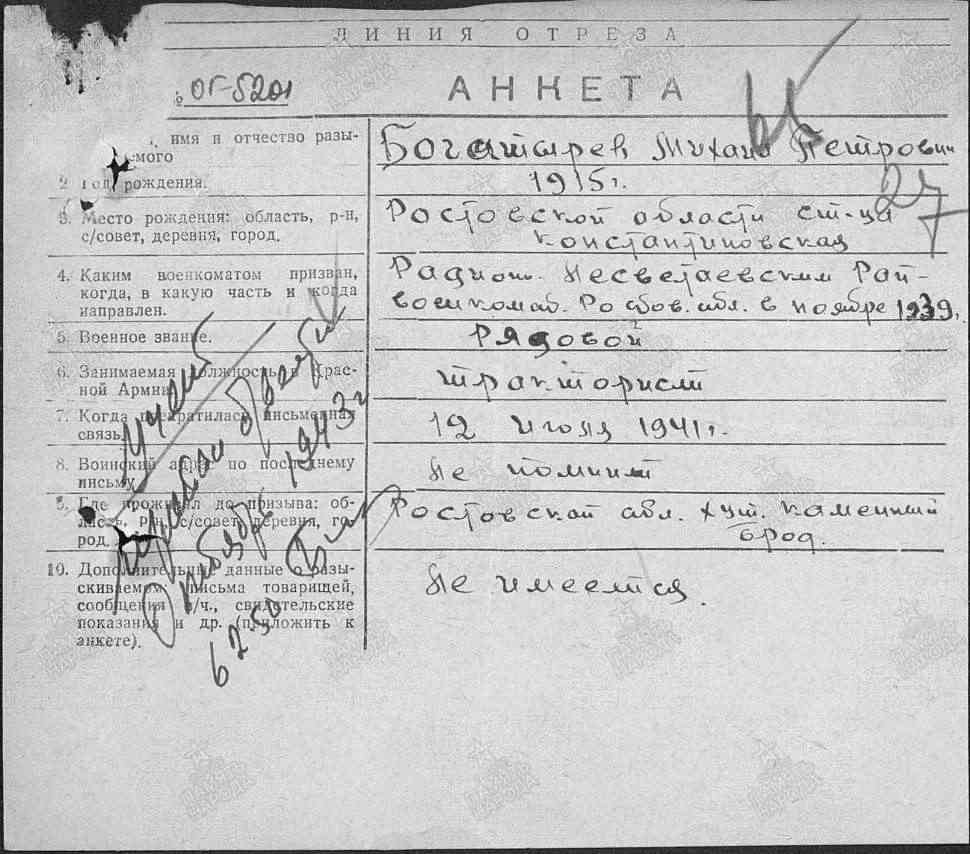 ЛИНИЯ ОТРЕЗА
№ ОГ-5201
АНКЕТА
имя и отчество разы-
емого
Богатырев Михаил Петрович
2. Год рождения.
1915 г.
27
3. Место рождения: область, р-н,
с/совет, деревня, город.
Ростовской области ст-ца
Константиновская
4. Каким военкоматом призван,
когда, в какую часть и когда
направлен.
Радион. Несветаевским Рай-
военкомат. Ростов. обл. в ноябре 1939 г.
5. Военное звание.
Рядовой
6. Занимаемая должность в Крас-
ной Армии
тракторист
7. Когда прекратилась письменная
связь.
12 июля 1941 г.
8. Воинский адрес по последнему
письму.
не помнит
9. Где проживал до призыва: об-
ласть, р-н, с/совет, деревня, го-
род.
Ростовской обл. хут. каменный
брод.
10. Дополнительные данные о разы-
скиваемом (письма товарищей,
сообщения в/ч., свидетельские
показания и др. (приложить к
анкете).
Не имеется.
1943 г
62 50